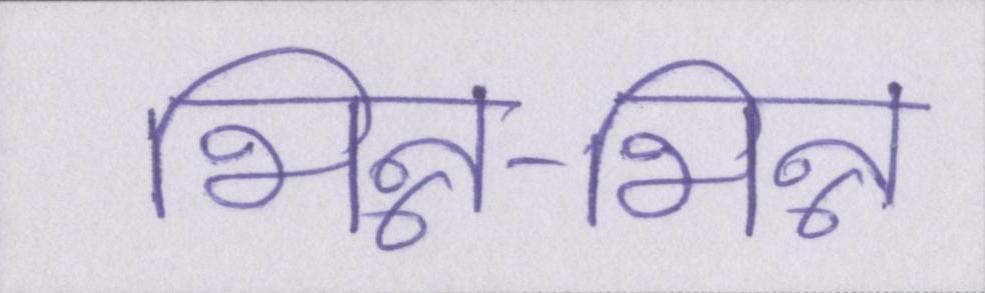 भिन्न-भिन्न